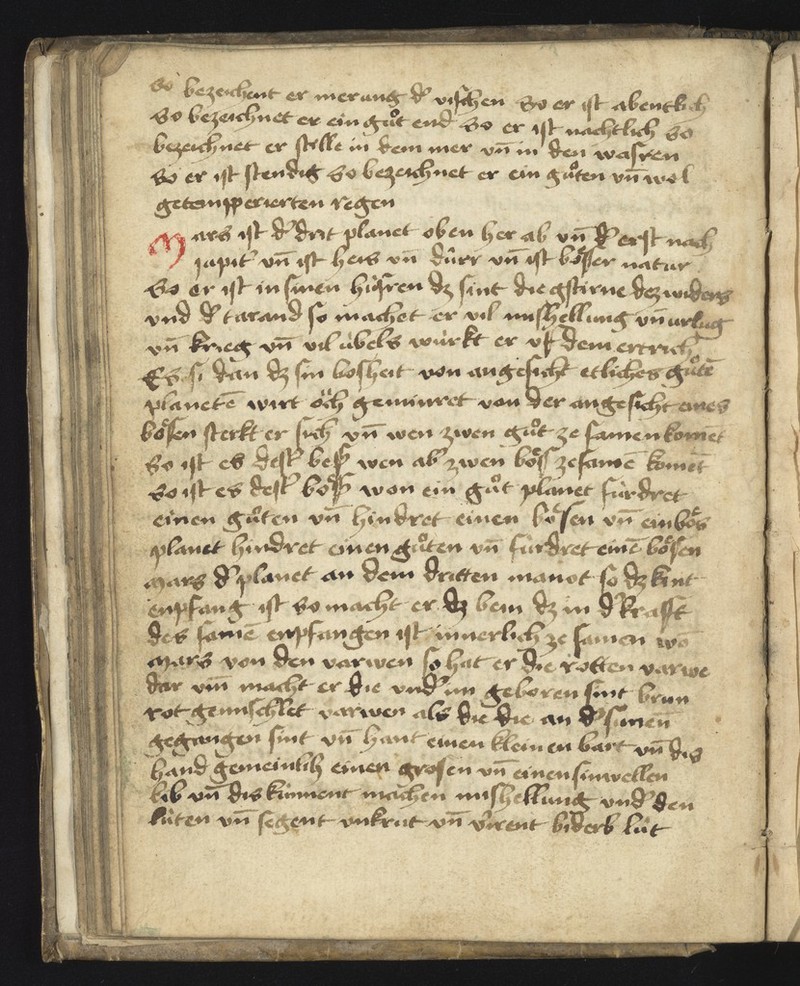 So bezeichent er merung dˀ vischen So er ist abentlich
So bezeichnet er ein gůt end So er ist nachtlich So
bezeichnet er stille in dem mer vn̄ in den wasren
So er ist stendig So bezeichnet er ein gůten vn̄ wol
getempperierten regen
Mars ist dˀ drit planet oben her ab vn̄ dˀ erst nach
jupitˀ vn̄ ist heis vn̄ dürr vn̄ ist böser natur
So er ist in sinen hüsren dz sint die gstirne dez widers
vnd dˀ tarand so machet er vil mishellung vn̄ urlúg
vn̄ krieg vn̄ vil úbels würkt er vf dem ertrich
Es si dan dz sin bosheit von angesicht etliches gůtē
planetē wirt öch geminret von der angesicht eines
bösen sterkt er sich vn̄ wen zwen gůt ze samen komēt
So ist es destˀ besˀ wen abˀ zwen bös zesamē komēt
So ist es destˀ bösˀ won ein gůt planet fúrdret
einen gůten vn̄ hindret einen bösen vn̄ ein bös
planet hindret einen gůten vn̄ fúrdret einē bösen
Mars dˀ planet an dem dritten manot so dz kint
enpfang ist So macht er dz bein dz in dˀ krafft
des samē enpfangen ist innerlich ze samen wō
Mars von den varwen so hat er die rotten varwe
dar vm̄ macht er die vndˀ im geboren sint brun
rot gemischlet varwen als die die an dˀ sunen
gegangen sint vn̄ hant einen kleinen bart vn̄ dis
hand gemeinlich einen grosen vn̄ einen sinwellen
lib vn̄ dis kúnnent machen mishellung vndˀ den
lúten vn̄ segent vnkrut vn̄ biderb lút